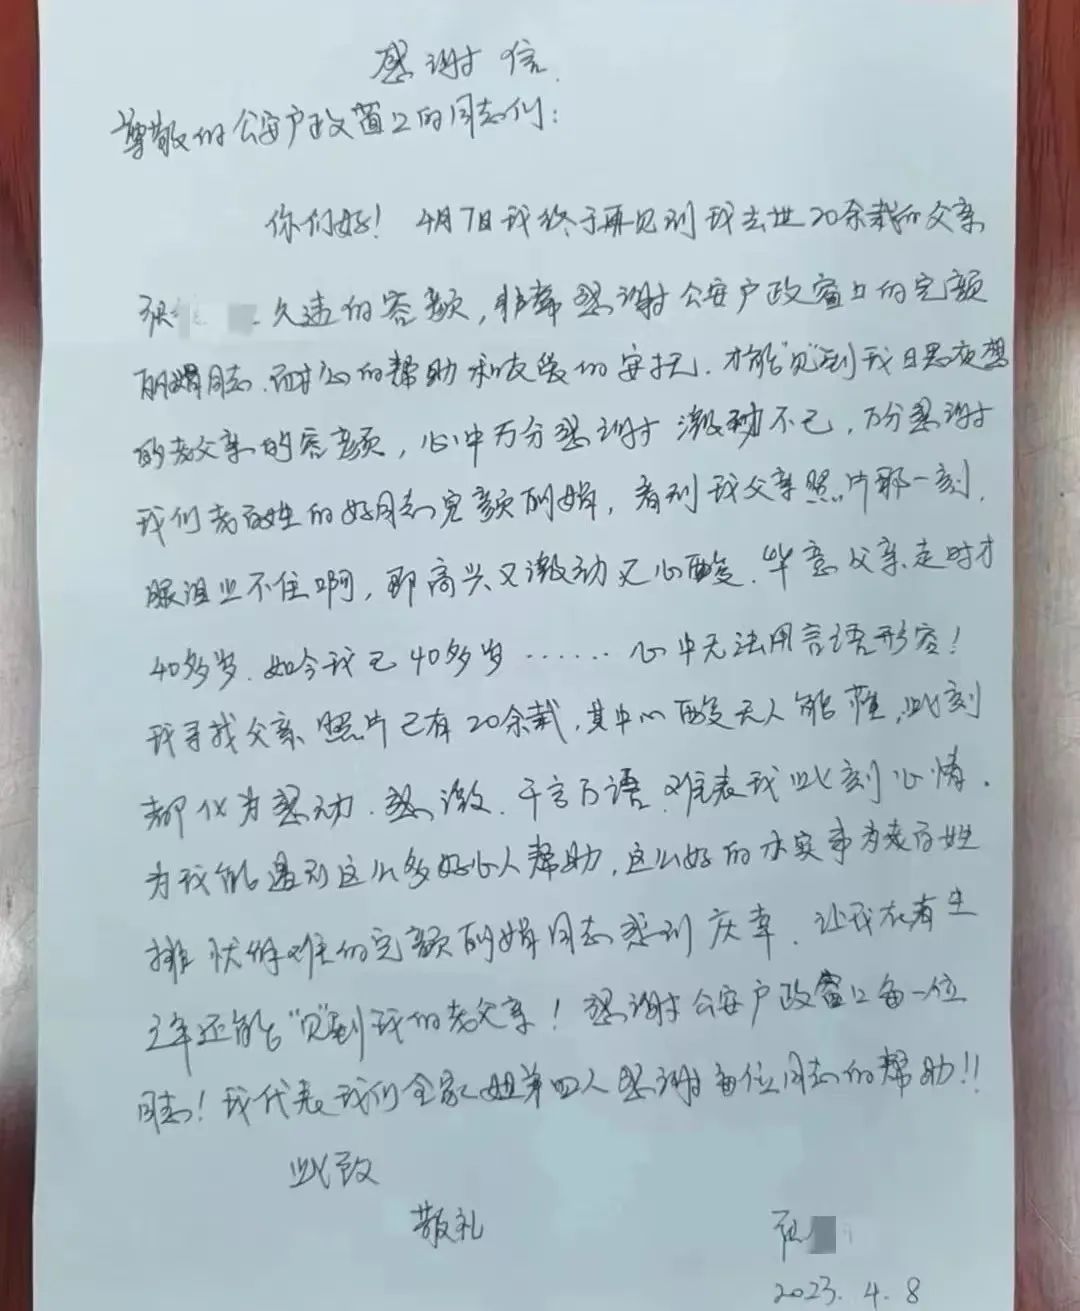 感谢信
尊敬的公安户政窗口的同志们：
你们好！4月7日我终于再见到我去世20余载的父亲
张 久违的容颜，非常感谢公安户政窗口的完颜
丽娟同志.耐心的帮助和友爱的安抚.才能"见"到我日思夜想
的老父亲的容颜，心中万分感谢激动不已，万分感谢
我们老百姓的好同志完颜丽娟，看到我父亲照片那一刻.
眼泪止不住啊，即高兴又激动又心酸.毕竟父亲走时才
40多岁.如今我已40多岁……心中无法用言语形容！
我寻找父亲照片已有20余载，其中心酸无人能懂，此刻
都化为感动.感激.千言万语.难表我此刻心情.
为我能遇到这么多好心人帮助，这么好的办实事为老百姓
排忧解难的完颜丽娟同志感到庆幸.让我在有生
之年还能"见"到我的老父亲！感谢公安户政窗口每一位
同志！我代表我们全家姐弟四人感谢每位同志的帮助!!
此致
敬礼
张
2023.4.8